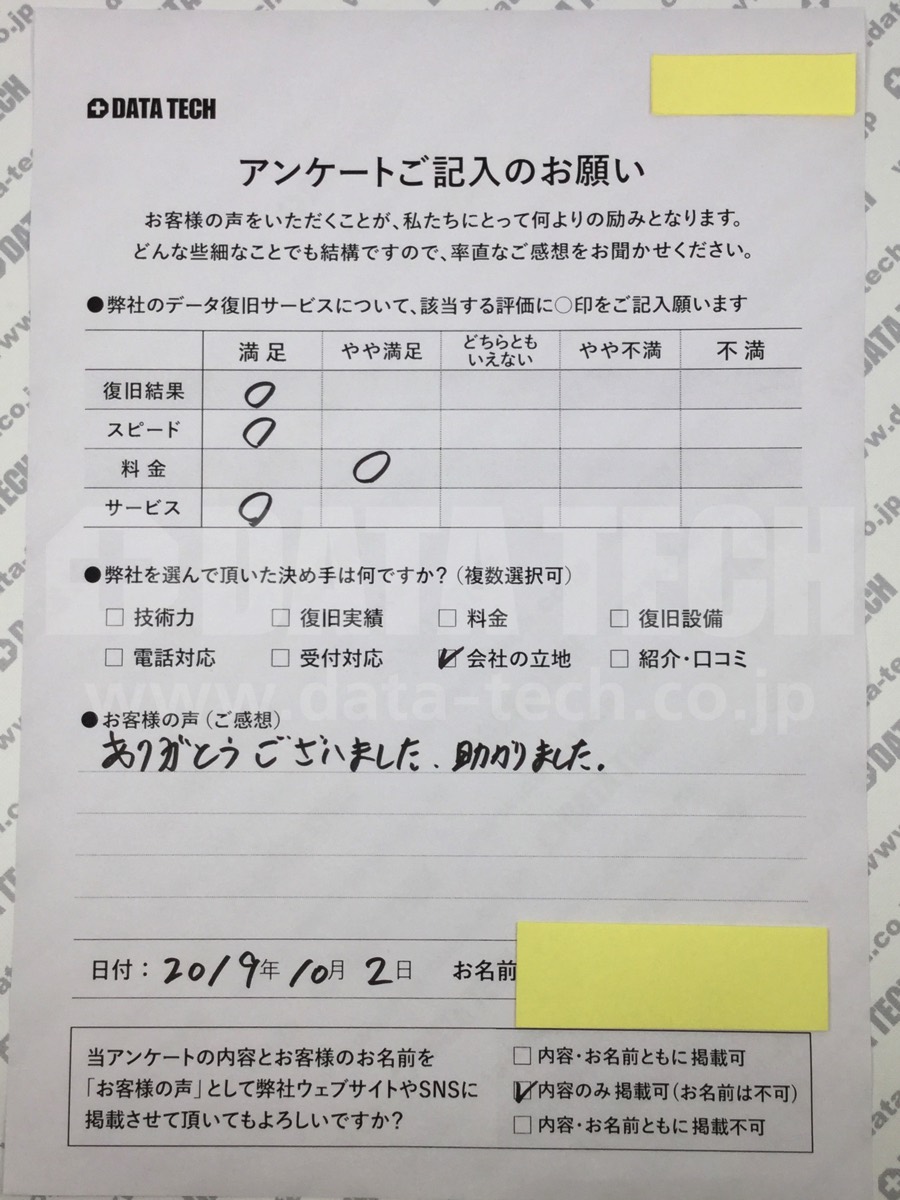 DATA TECH
アンケートご記入のお願い
お客様の声をいただくことが、私たちにとって何よりの励みとなります。
どんな些細なことでも結構ですので、率直なご感想をお聞かせください。
●弊社のデータ復旧サービスについて、該当する評価に○印をご記入願います
満足 やや満足 どちらとも いえない やや不満 不満
復旧結果 ○
スピード ○
料金 ○
サービス ○
DATA TECH
●弊社を選んで頂いた決め手は何ですか?(複数選択可)
□ 技術力 □ 復旧実績 □ 料金 □ 復旧設備
□ 電話対応 □ 受付対応 ☑ 会社の立地 □ 紹介・口コミ
www.data-tech.co.jp
●お客様の声(ご感想)
ありがとうございました、助かりました。
日付：2019年10月2日 お名前
当アンケートの内容とお客様のお名前を
「お客様の声」として弊社ウェブサイトやSNSに
掲載させて頂いてもよろしいですか?
□ 内容・お名前ともに掲載可
☑ 内容のみ掲載可(お名前は不可)
□ 内容・お名前ともに掲載不可